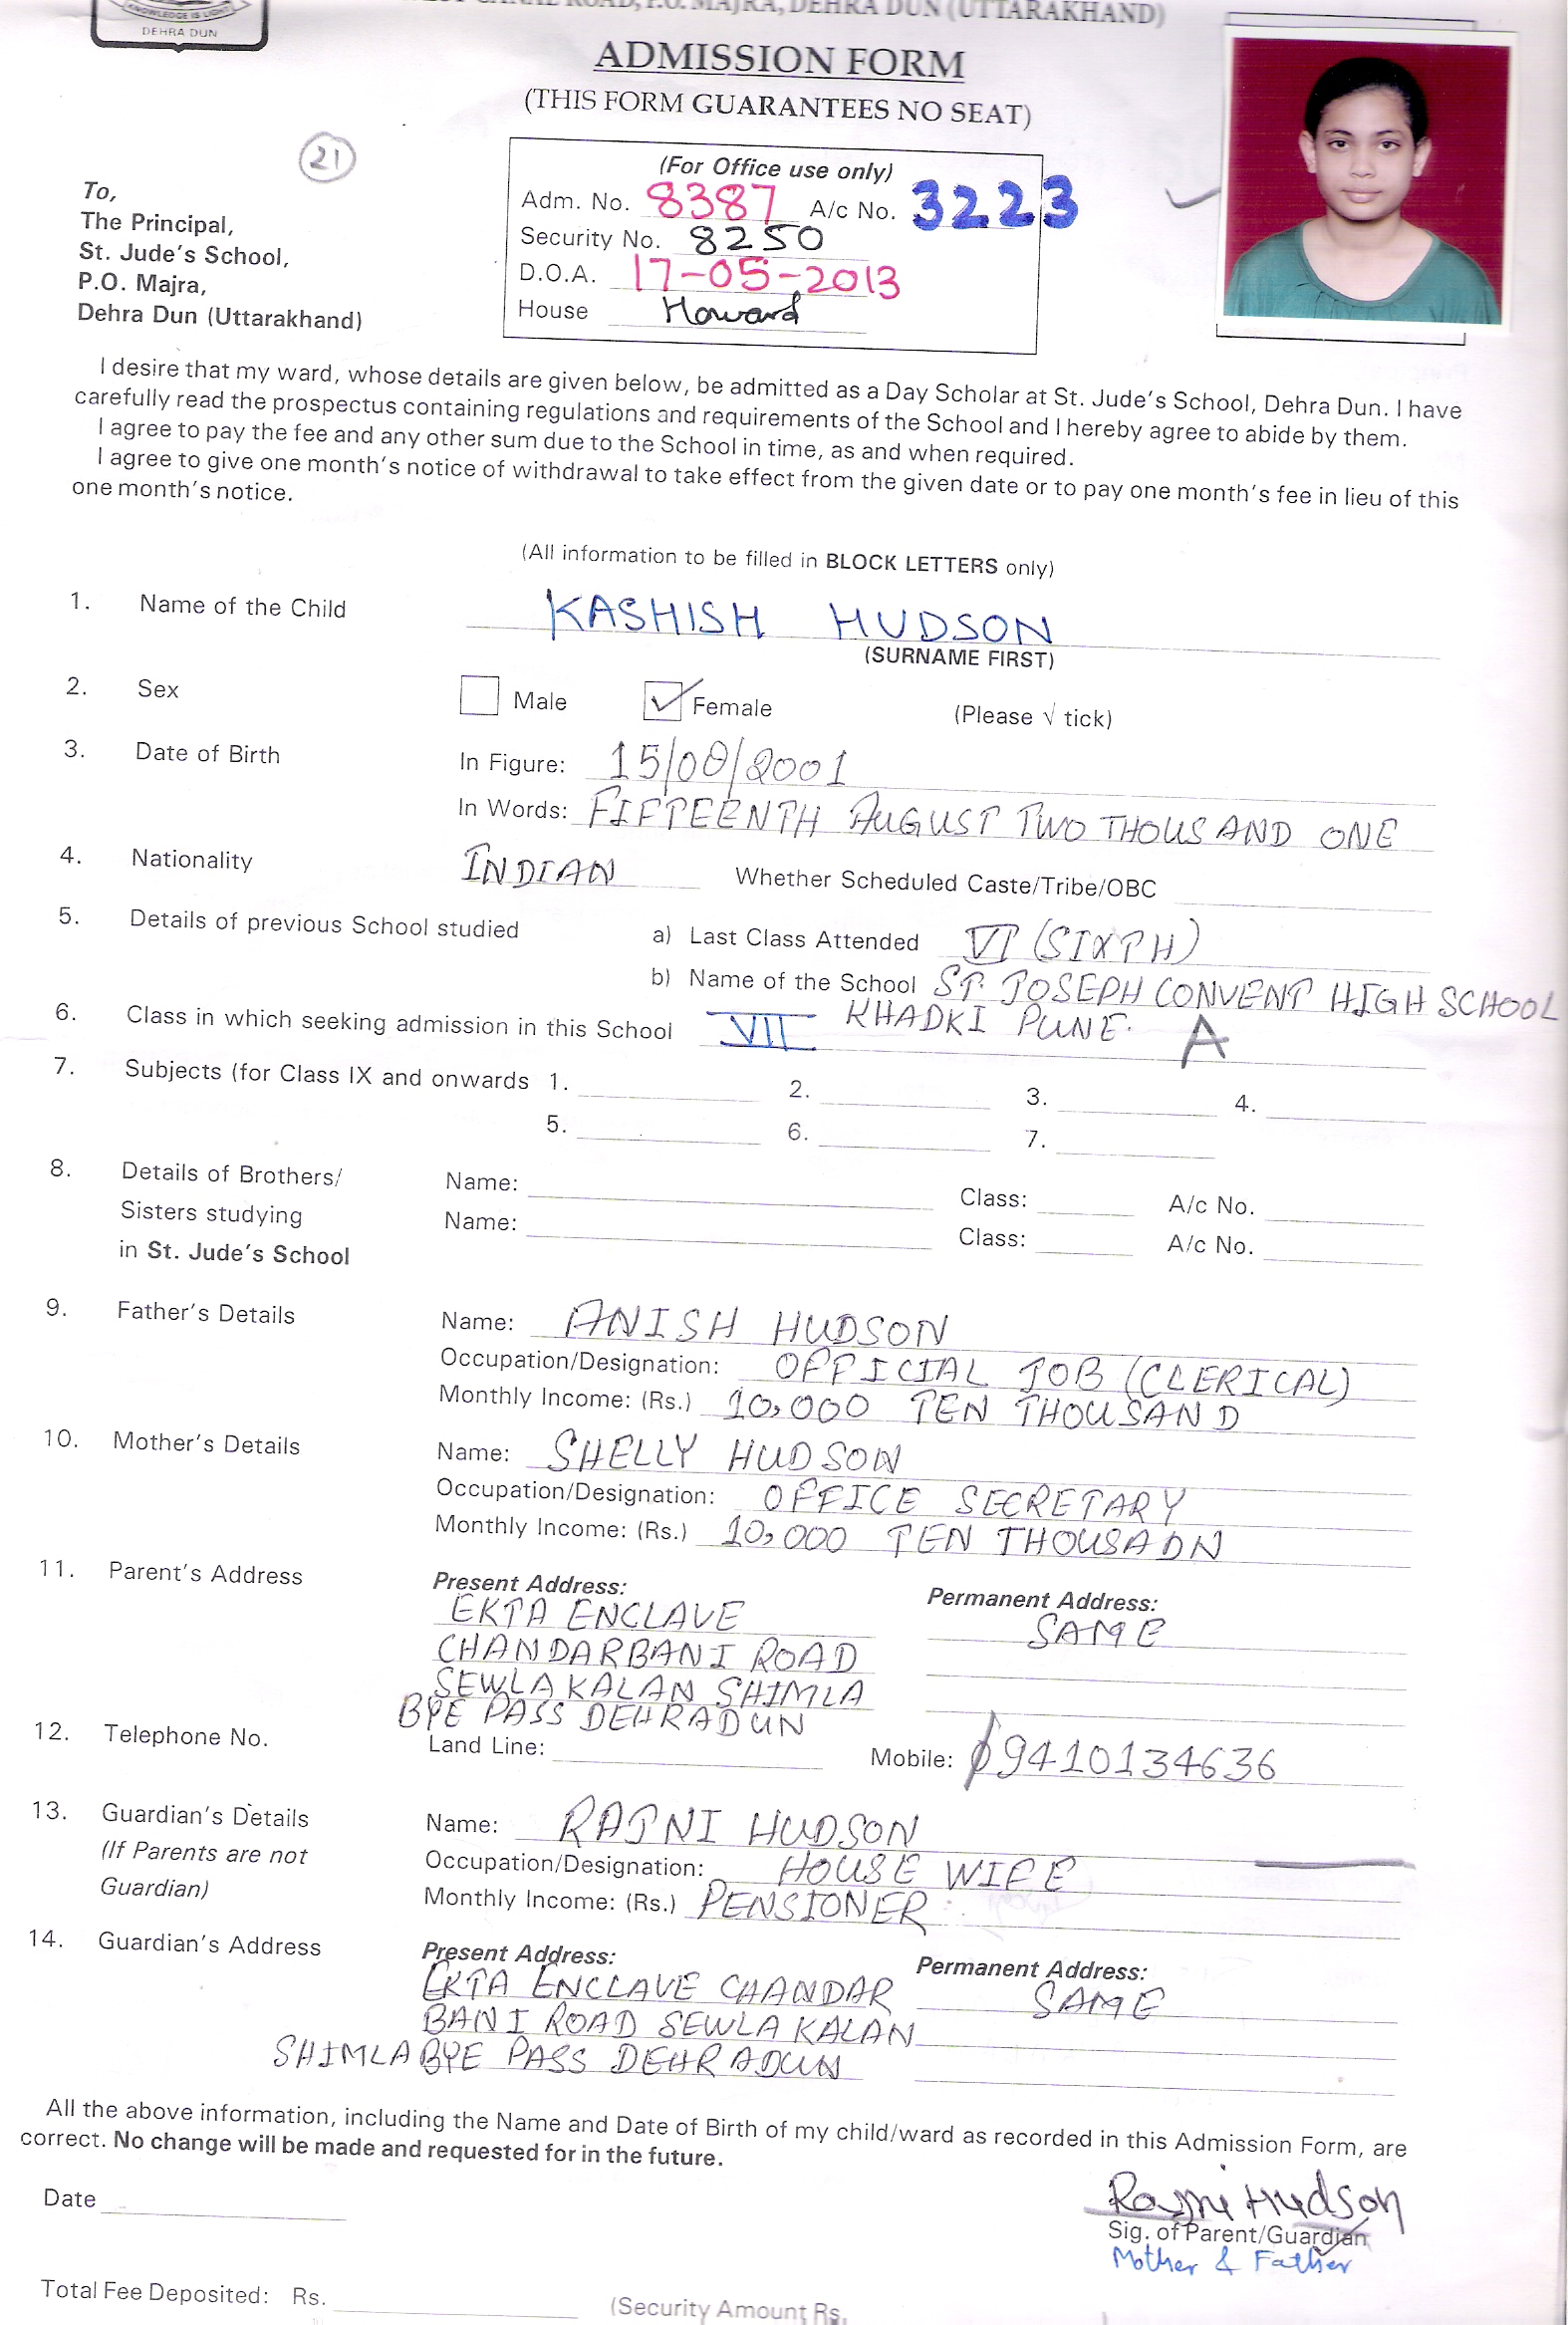 KNOWLEDGE IS LIGHT
DEHRA DUN
WEST CANAL ROAD, P.O. MAJRA, DEHRA DUN (UTTARAKHAND)
ADMISSION FORM
(THIS FORM GUARANTEES NO SEAT)
21
(For Office use only)
Adm. No. 8387 A/c No. 3223
Security No. 8250
D.O.A. 17-05-2013
House Howard
To,
The Principal,
St. Jude's School,
P.O. Majra,
Dehra Dun (Uttarakhand)
I desire that my ward, whose details are given below, be admitted as a Day Scholar at St. Jude's School, Dehra Dun. I have
carefully read the prospectus containing regulations and requirements of the School and I hereby agree to abide by them.
I agree to pay the fee and any other sum due to the School in time, as and when required.
I agree to give one month's notice of withdrawal to take effect from the given date or to pay one month's fee in lieu of this
one month's notice.
(All information to be filled in BLOCK LETTERS only)
1. Name of the Child KASHISH HUDSON
(SURNAME FIRST)
2. Sex Male Female (Please √ tick)
3. Date of Birth In Figure: 15/08/2001
In Words: FIFTEENTH AUGUST TWO THOUSAND ONE
4. Nationality INDIAN Whether Scheduled Caste/Tribe/OBC
5. Details of previous School studied a) Last Class Attended VI (SIXTH)
b) Name of the School ST. JOSEPH CONVENT HIGH SCHOOL
KHADKI PUNE.
6. Class in which seeking admission in this School VII A
7. Subjects (for Class IX and onwards 1. 2. 3. 4.
5. 6. 7.
8. Details of Brothers/ Name: Class: A/c No.
Sisters studying Name: Class: A/c No.
in St. Jude's School
9. Father's Details Name: ANISH HUDSON
Occupation/Designation: OFFICIAL JOB (CLERICAL)
Monthly Income: (Rs.) 10,000 TEN THOUSAND
10. Mother's Details Name: SHELLY HUDSON
Occupation/Designation: OFFICE SECRETARY
Monthly Income: (Rs.) 10,000 TEN THOUSADN
11. Parent's Address Present Address: Permanent Address:
EKTA ENCLAVE SAME
CHANDARBANI ROAD
SEWLA KALAN SHIMLA
BYE PASS DEHRADUN
12. Telephone No. Land Line: Mobile: 9410134636
13. Guardian's Details Name: RAJNI HUDSON
(If Parents are not Occupation/Designation: HOUSE WIFE
Guardian) Monthly Income: (Rs.) PENSIONER
14. Guardian's Address Present Address: Permanent Address:
EKTA ENCLAVE CHANDAR SAME
BANI ROAD SEWLA KALAN
SHIMLA BYE PASS DEHRADUN
All the above information, including the Name and Date of Birth of my child/ward as recorded in this Admission Form, are
correct. No change will be made and requested for in the future.
Date
Rajni Hudson
Sig. of Parent/Guardian
Mother & Father
Total Fee Deposited: Rs. (Security Amount Rs.